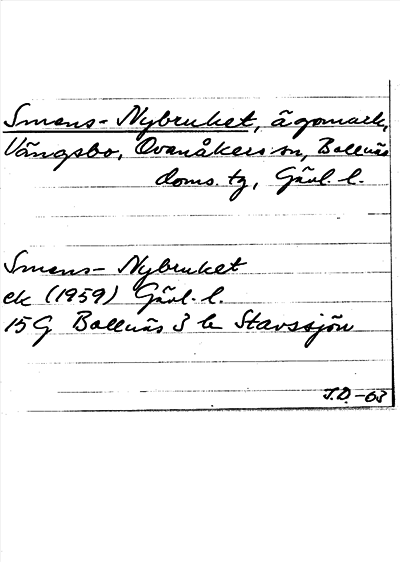 Smens-Nybruket, ägomark,
Vängsbo, Ovanåkers sn, Bollnäs
doms. tg, Gävl. l.
Smens-Nybruket
ek (1959) Gävl. l.
15G Bollnäs 3 b Stavssjön
J.D.-63